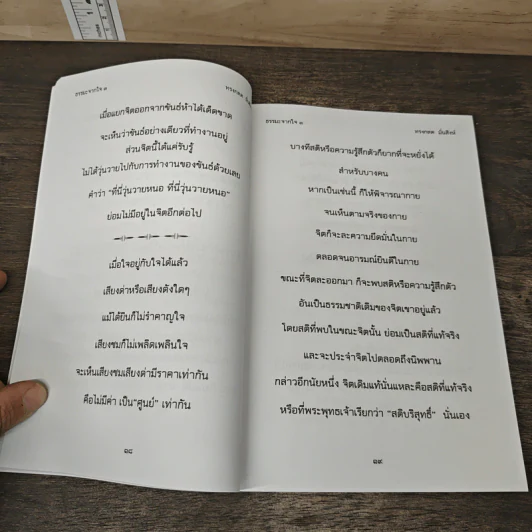 ธรรมะจากใจ ๓
ทรงกลด
เมื่อแยกจิตออกจากขันธ์ห้าได้เด็ดขาด
จะเห็นว่าขันธ์อย่างเดียวที่ทำงานอยู่
ส่วนจิตนี้ได้แค่รับรู้
ไม่ได้วุ่นวายไปกับการทำงานของขันธ์ด้วยเลย
คำว่า "ที่นี่วุ่นวายหนอ ที่นี่วุ่นวายหนอ"
ย่อมไม่มีอยู่ในจิตอีกต่อไป
เมื่อใจอยู่กับใจได้แล้ว
เสียงด่าหรือเสียงดังใดๆ
แม้ได้ยินก็ไม่รำคาญใจ
เสียงชมก็ไม่เพลิดเพลินใจ
จะเห็นเสียงชมเสียงด่ามีราคาเท่ากัน
คือไม่มีค่า เป็น"ศูนย์" เท่ากัน
๑๘
ธรรมะจากใจ ๓
ทรงกลด มั่นสิงห์
บางทีสติหรือความรู้สึกตัวก็ยากที่จะหยั่งได้
สำหรับบางคน
หากเป็นเช่นนี้ ก็ให้พิจารณากาย
จนเห็นตามจริงของกาย
จิตก็จะละความยึดมั่นในกาย
ตลอดจนอารมณ์ยินดีในกาย
ขณะที่จิตละออกมา ก็จะพบสติหรือความรู้สึกตัว
อันเป็นธรรมชาติเดิมของจิตเขาอยู่แล้ว
โดยสติที่พบในขณะจิตนั้น ย่อมเป็นสติที่แท้จริง
และจะประจำจิตไปตลอดถึงนิพพาน
กล่าวอีกนัยหนึ่ง จิตเดิมแท้นั่นแหละคือสติที่แท้จริง
หรือที่พระพุทธเจ้าเรียกว่า "สติบริสุทธิ์" นั่นเอง
๑๙